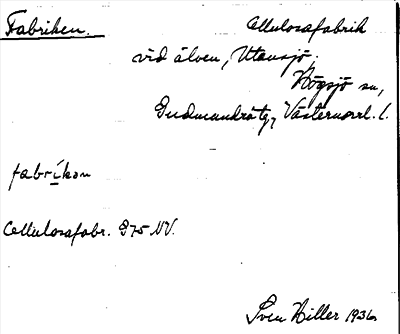 Fabriken. Cellulosafabrik
vid älven, Utansjö,
Högsjö sn,
Gudmundrå tg, Västernorrl. l.
fabríkən
Cellulosafabr. 975 NV.
Sven Hiller 1936